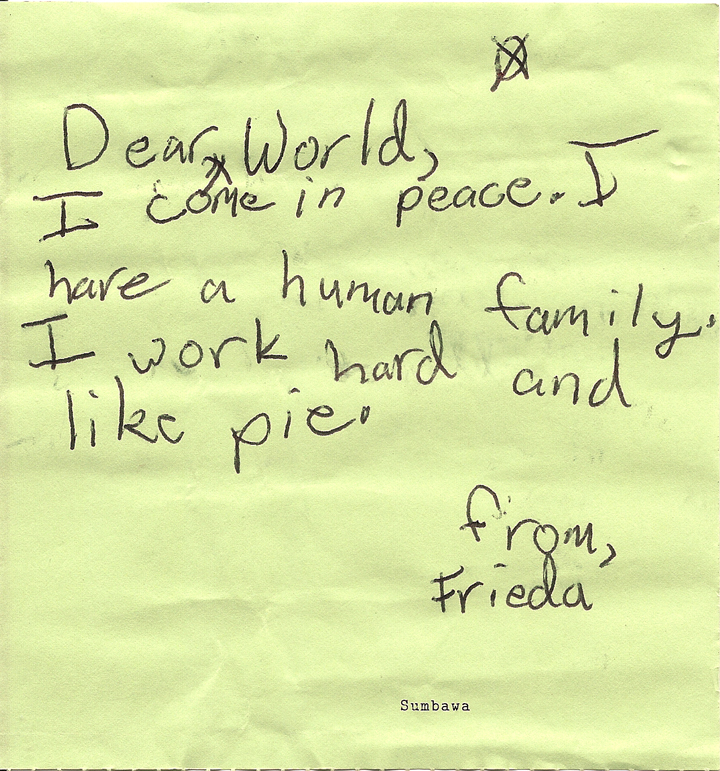 Dear, World,
I come in peace. I
have a human family.
I work hard and
like pie.
from,
Frieda
Sumbawa